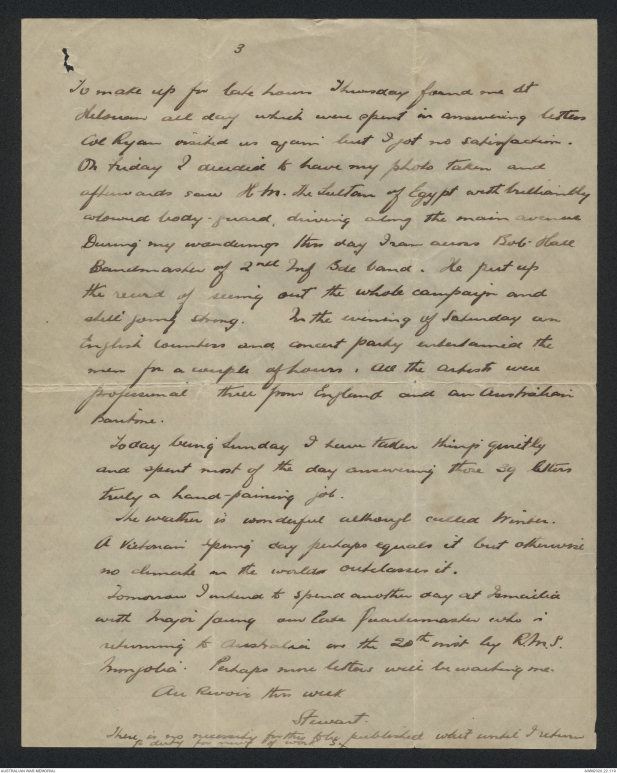 3
To make up for late hours Thursday found me at
Helouan all day which were spent in answering letters
Col Ryan visited us again but I got no satisfaction.
On Friday I decided to have my photo taken and
afterwards saw H.M. the Sultan of Egypt with brilliantly
coloured body-guard, driving along the main avenue
During my wanderings this day I ran across Bob Hall
Bandmaster of 2nd Inf Bde band. He put up
the record of seeing out the whole campaign and
still going strong. In the evening of Saturday an
English Countess and concert party entertained the
men for a couple of hours. All the artists were
professional three from England and an Australian
baritone.
Today being Sunday I have taken things quietly
and spent most of the day answering those 39 letters
truly a hand-paining job.
The weather is wonderful although called Winter.
A Victorian spring day perhaps equals it but otherwise
no climate in the world outclasses it.
Tomorrow I intend to spend another day at Ismailia
with Major Young our late Quartermaster who is
returning to Australia on the 20th inst by R.M.S.
Mongolia. Perhaps more letters will be waiting me.
Au Revoir this week
Stewart.
There is no necessity for this to be published wait until I return
to duty for news of work St
AUSTRALIAN WAR MEMORIAL